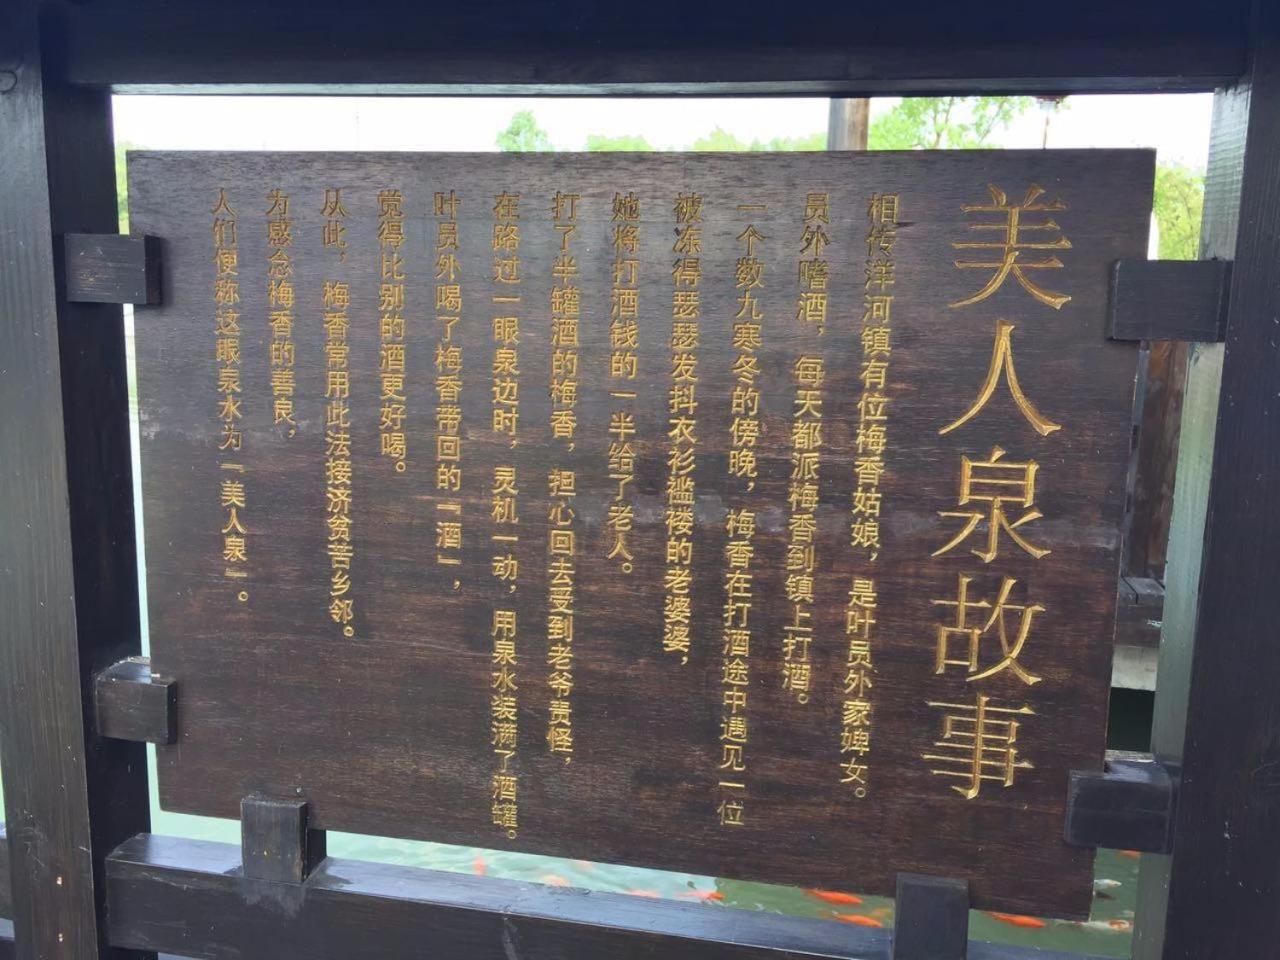 美人泉故事
相传洋河镇有位梅香姑娘，是叶员外家婢女。
员外嗜酒，每天都派梅香到镇上打酒。
一个数九寒冬的傍晚，梅香在打酒途中遇见一位
被冻得瑟瑟发抖衣衫褴褛的老婆婆，
她将打酒钱的一半给了老人。
打了半罐酒的梅香，担心回去受到老爷责怪，
在路过一眼泉边时，灵机一动，用泉水装满了酒罐。
叶员外喝了梅香带回的『酒』，
觉得比别的酒更好喝。
从此，梅香常用此法接济贫苦乡邻。
为感念梅香的善良，
人们便称这眼泉水为『美人泉』。